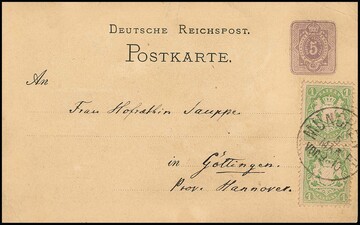 DEUTSCHE REICHSPOST.
POSTKARTE.
5
An
1
Frau Hofräthin Sauppe
in Göttingen.
Prov. Hannover.